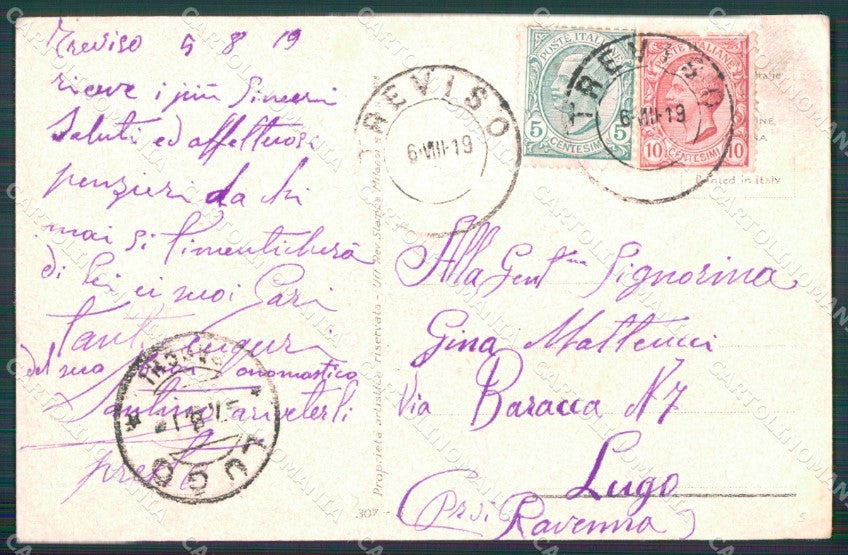 Treviso 5 8 19
riceve i più sinceri
saluti ed affettuosi
penzieri da chi
mai si dimenticherà
di Lei ei suoi Cari
Tanti auguri
del suo onomastico
Santino ariveterli
presto
TREVISO
6·VIII·19
POSTE ITALIANE
5 CENTESIMI 5
TRENTESO
6·VIII·19
POSTE ITALIANE
10 CENTESIMI 10
Printed in Italy
Alla Gent.ma Signorina
Gina Matteucci
Via Baracca N 7
Lugo
(Prov. Ravenna)
LUGO
Proprietà artistica riservata - Uff. Rev. Stampa Milano
307
CARTOLINOMANIA